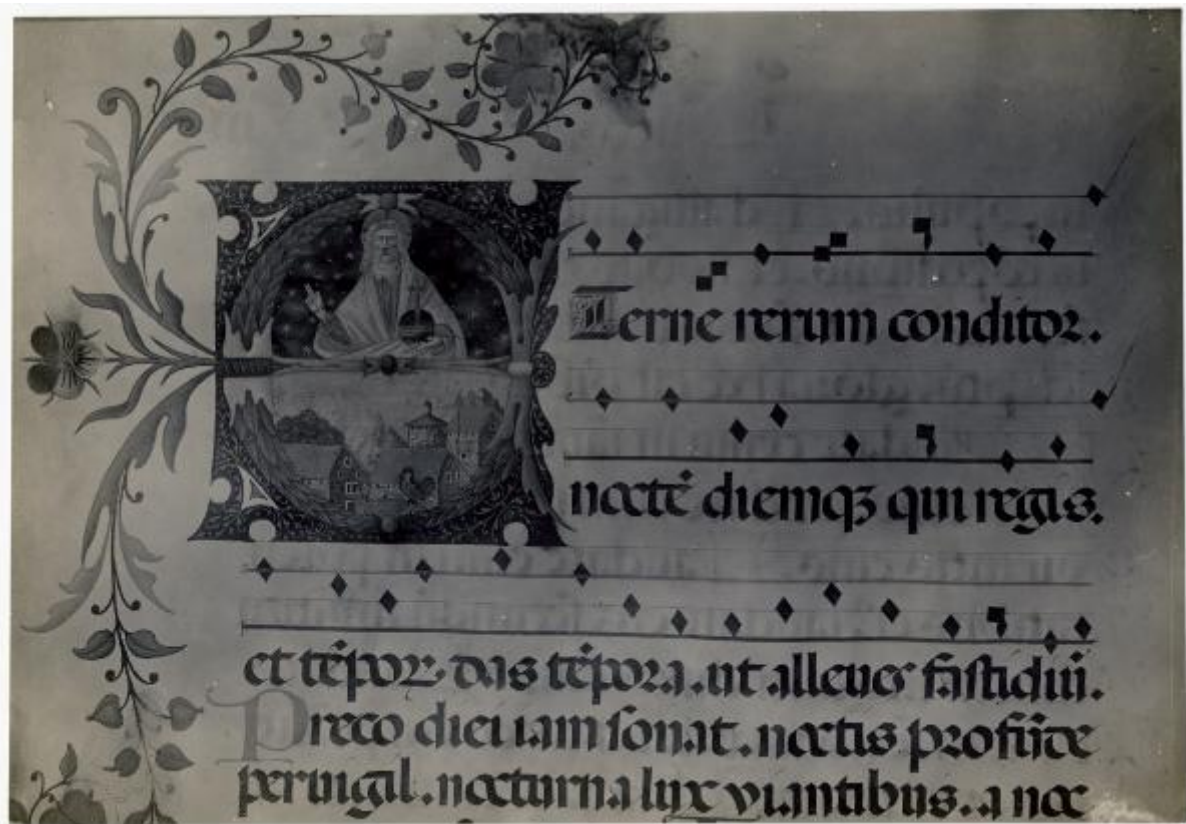 Eterne rerum conditor.
noctē diemqꝫ qui regis.
et tēpoꝝ das tēpora. ut alleues fastidiū.
Preco diei iam sonat. noctis profūde
peruigil. nocturna lux viantibus. a noc